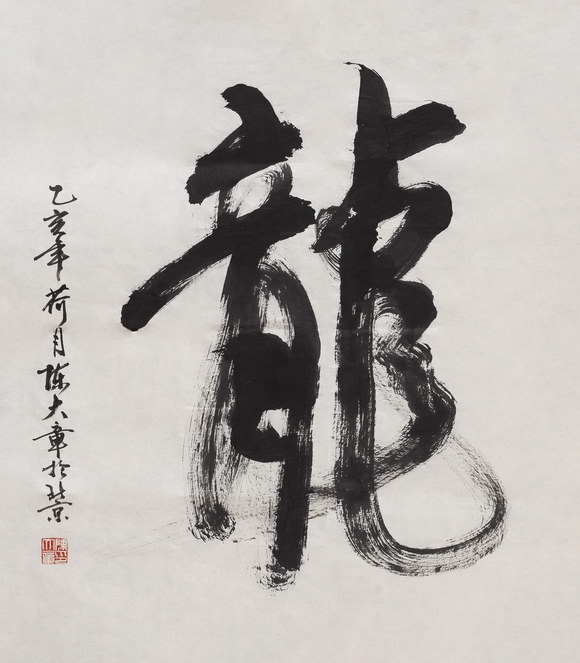 龍
乙亥年荷月陈大章於北京